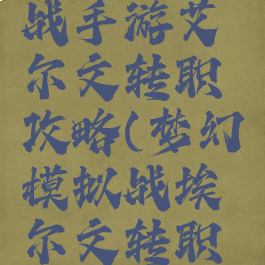 战手游艾
尔文转职
攻略(梦幻
模拟战埃
尔文转职